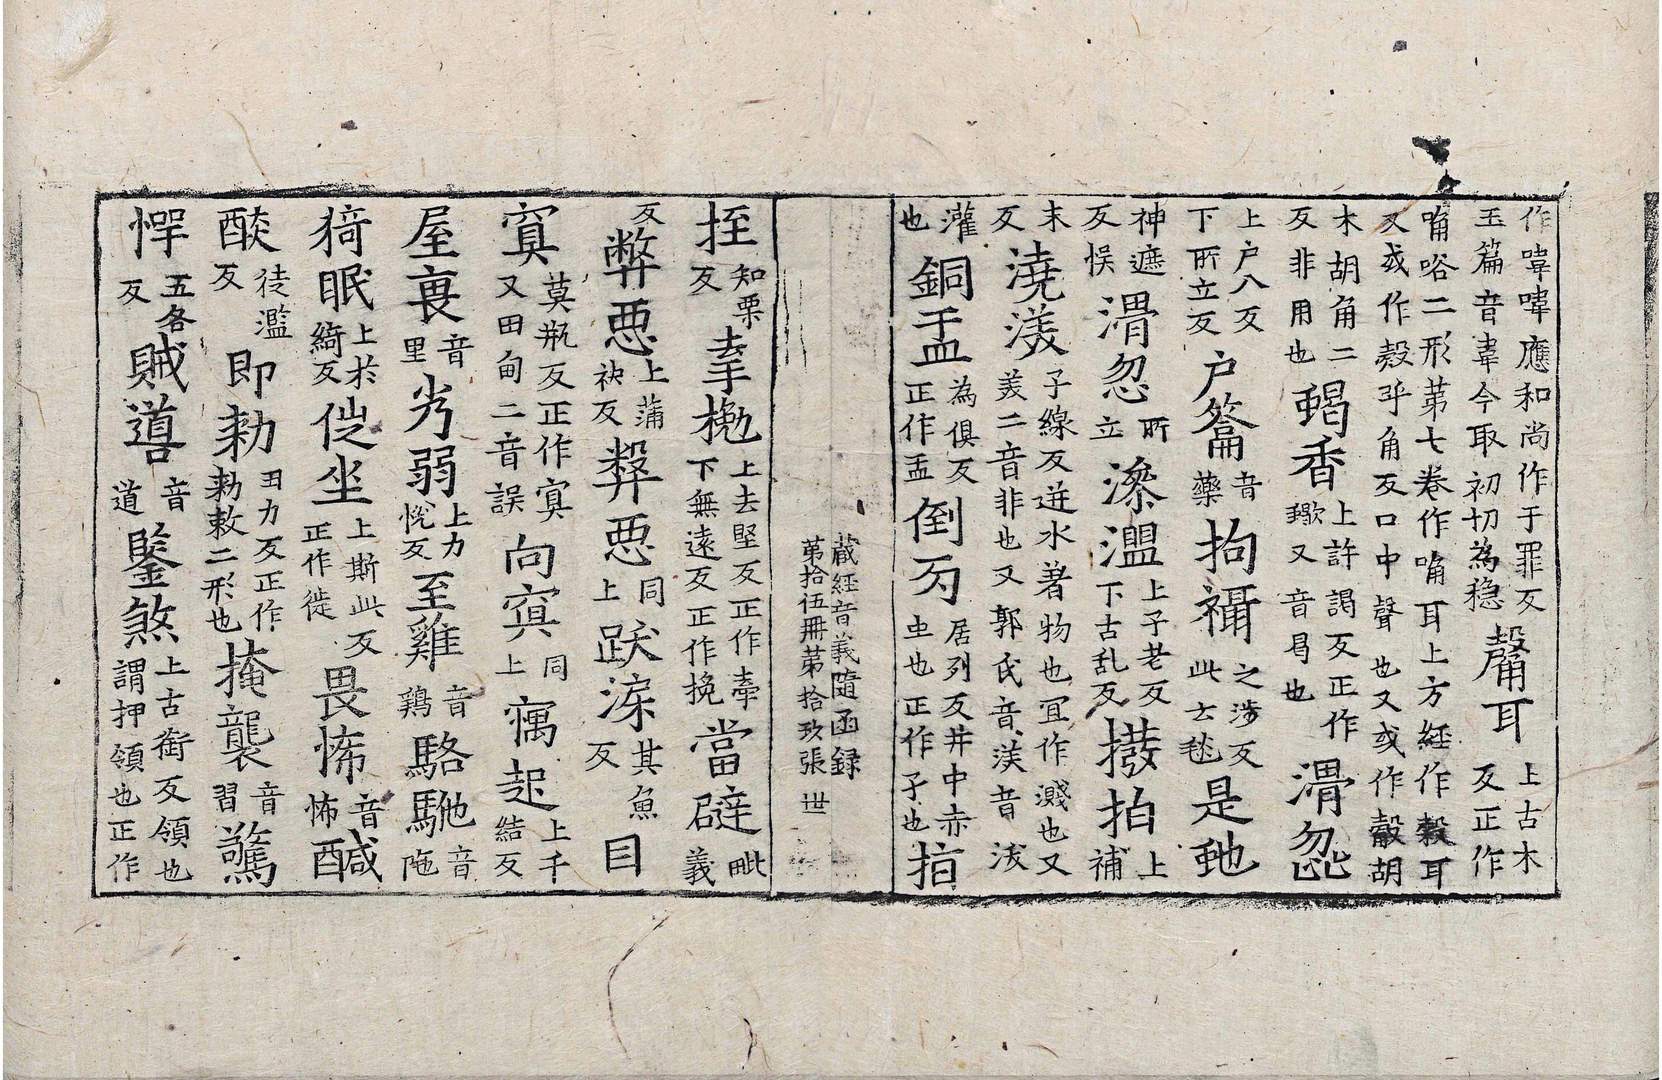 作喗喗應和尚作于罪反
玉篇音韋今取初切為穩
𪔣耳
上古木
反正作
㕟㗀二形苐七卷作㕟耳上方經作穀耳
又或作㱿乎角反口中聲也又或作㱿胡
木胡角二
反非用也
蝎香
上許謁反正作
蠍又音曷也
滑𢗘
上户八反
下所立反
户籥
音
藥
拘𧝓
之涉反
此士毯
是虵
神遮
反悮
滑忽
所
立
滲濈
上子老反
下古乱反
撥拍
上
補
末
反
澆渼
子線反迸水著物也冝作濺也又
羙二音非也又郭氏音渼音泼
灌
也
銅盂
為俱反
正作盂
倒孑
居列反井中赤
虫也正作孑也
拍
蔵經音義隨函録
苐拾伍冊苐拾玖張 世
挃
知栗
反
牽㧥
上去堅反正作牽
下無遠反正作挽
當礔
毗
義
反
弊惡
上蒲
袂反
弊惡
同
上
跃深
其魚
反
目
寘
莫瓶反正作㝠
又田甸二音誤
向㝠
同
上
寱起
上千
結反
屋裏
音
里
劣弱
上力
恱反
至雞
音
鶏
駱駞
音
陁
猗眠
上扵
綺反
徙坐
上斯此反
正作徙
畏怖
音
怖
醎
醈
徒濫
反
即勑
丑力反正作
勅敕二形也
掩襲
音
習
驚
愕
五各
反
賊噵
音
道
鑒煞
上古銜反領也
謂押領也正作